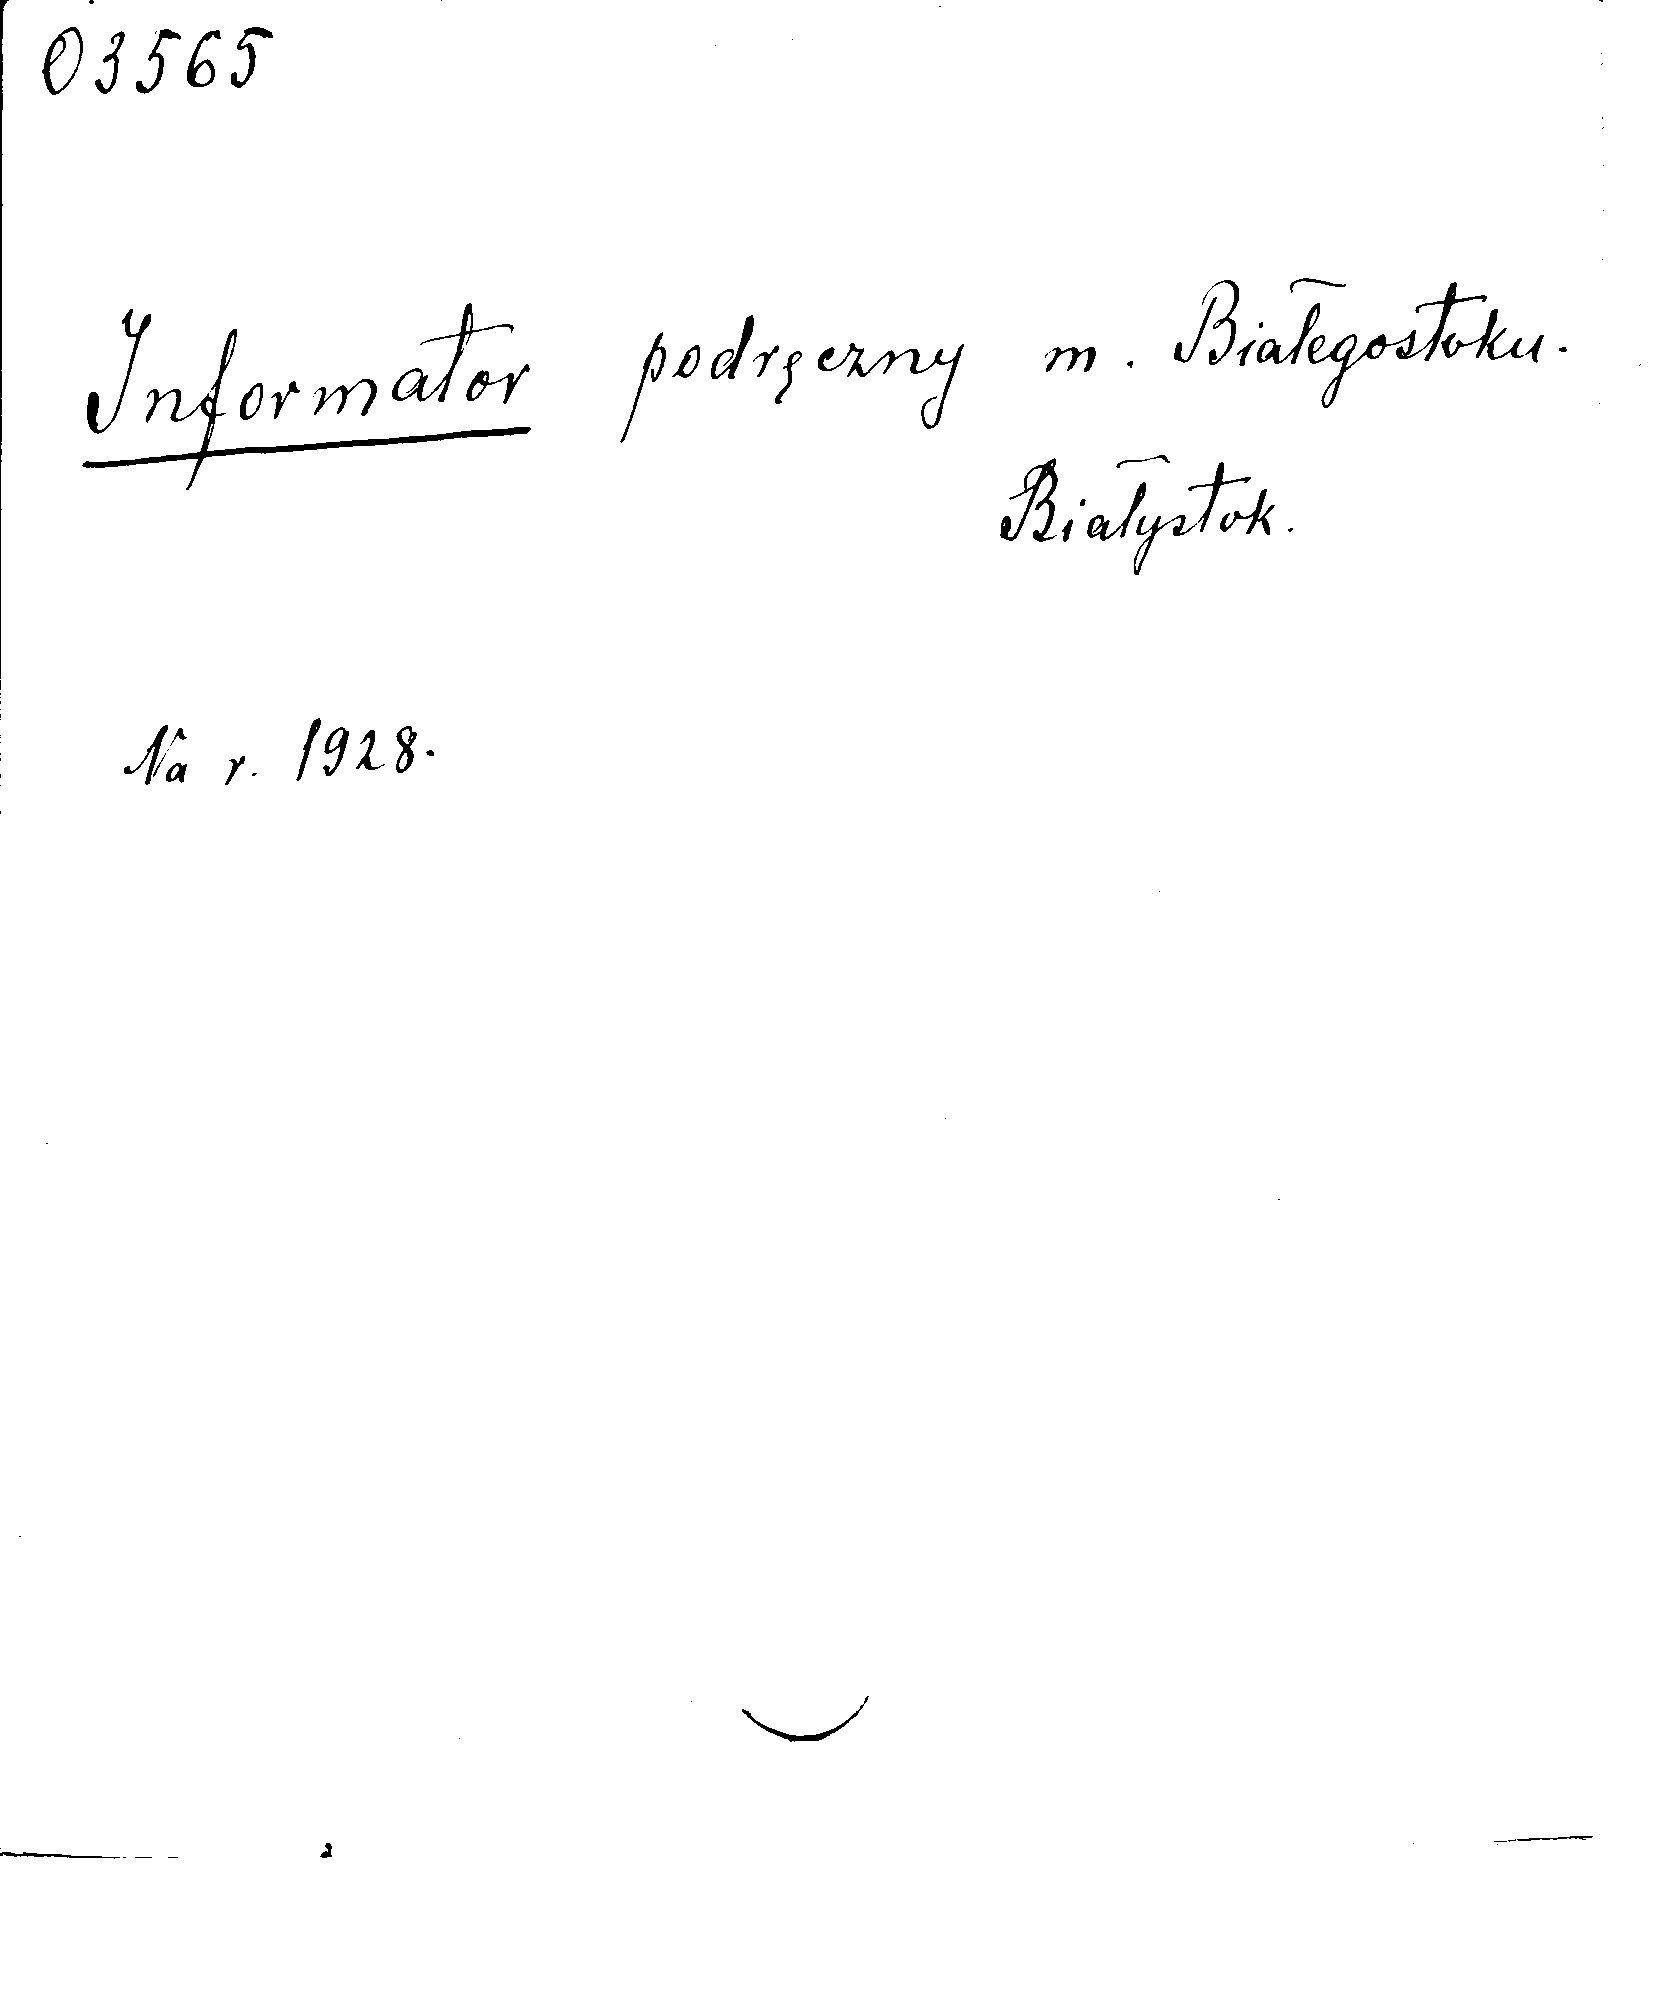 03565
Informator podręczny m. Białegostoku.
Białystok.
Na r. 1928.